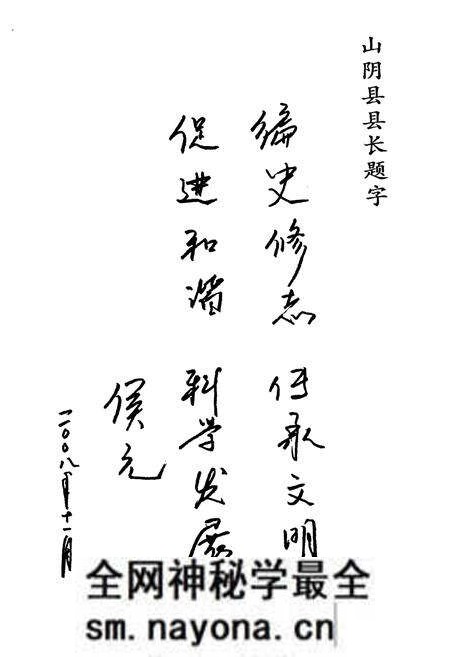 山阴县县长题字
编史修志 传承文明
促进和谐 科学发展
侯元
二〇〇八年十一月
全网神秘学最全
sm.nayona.cn